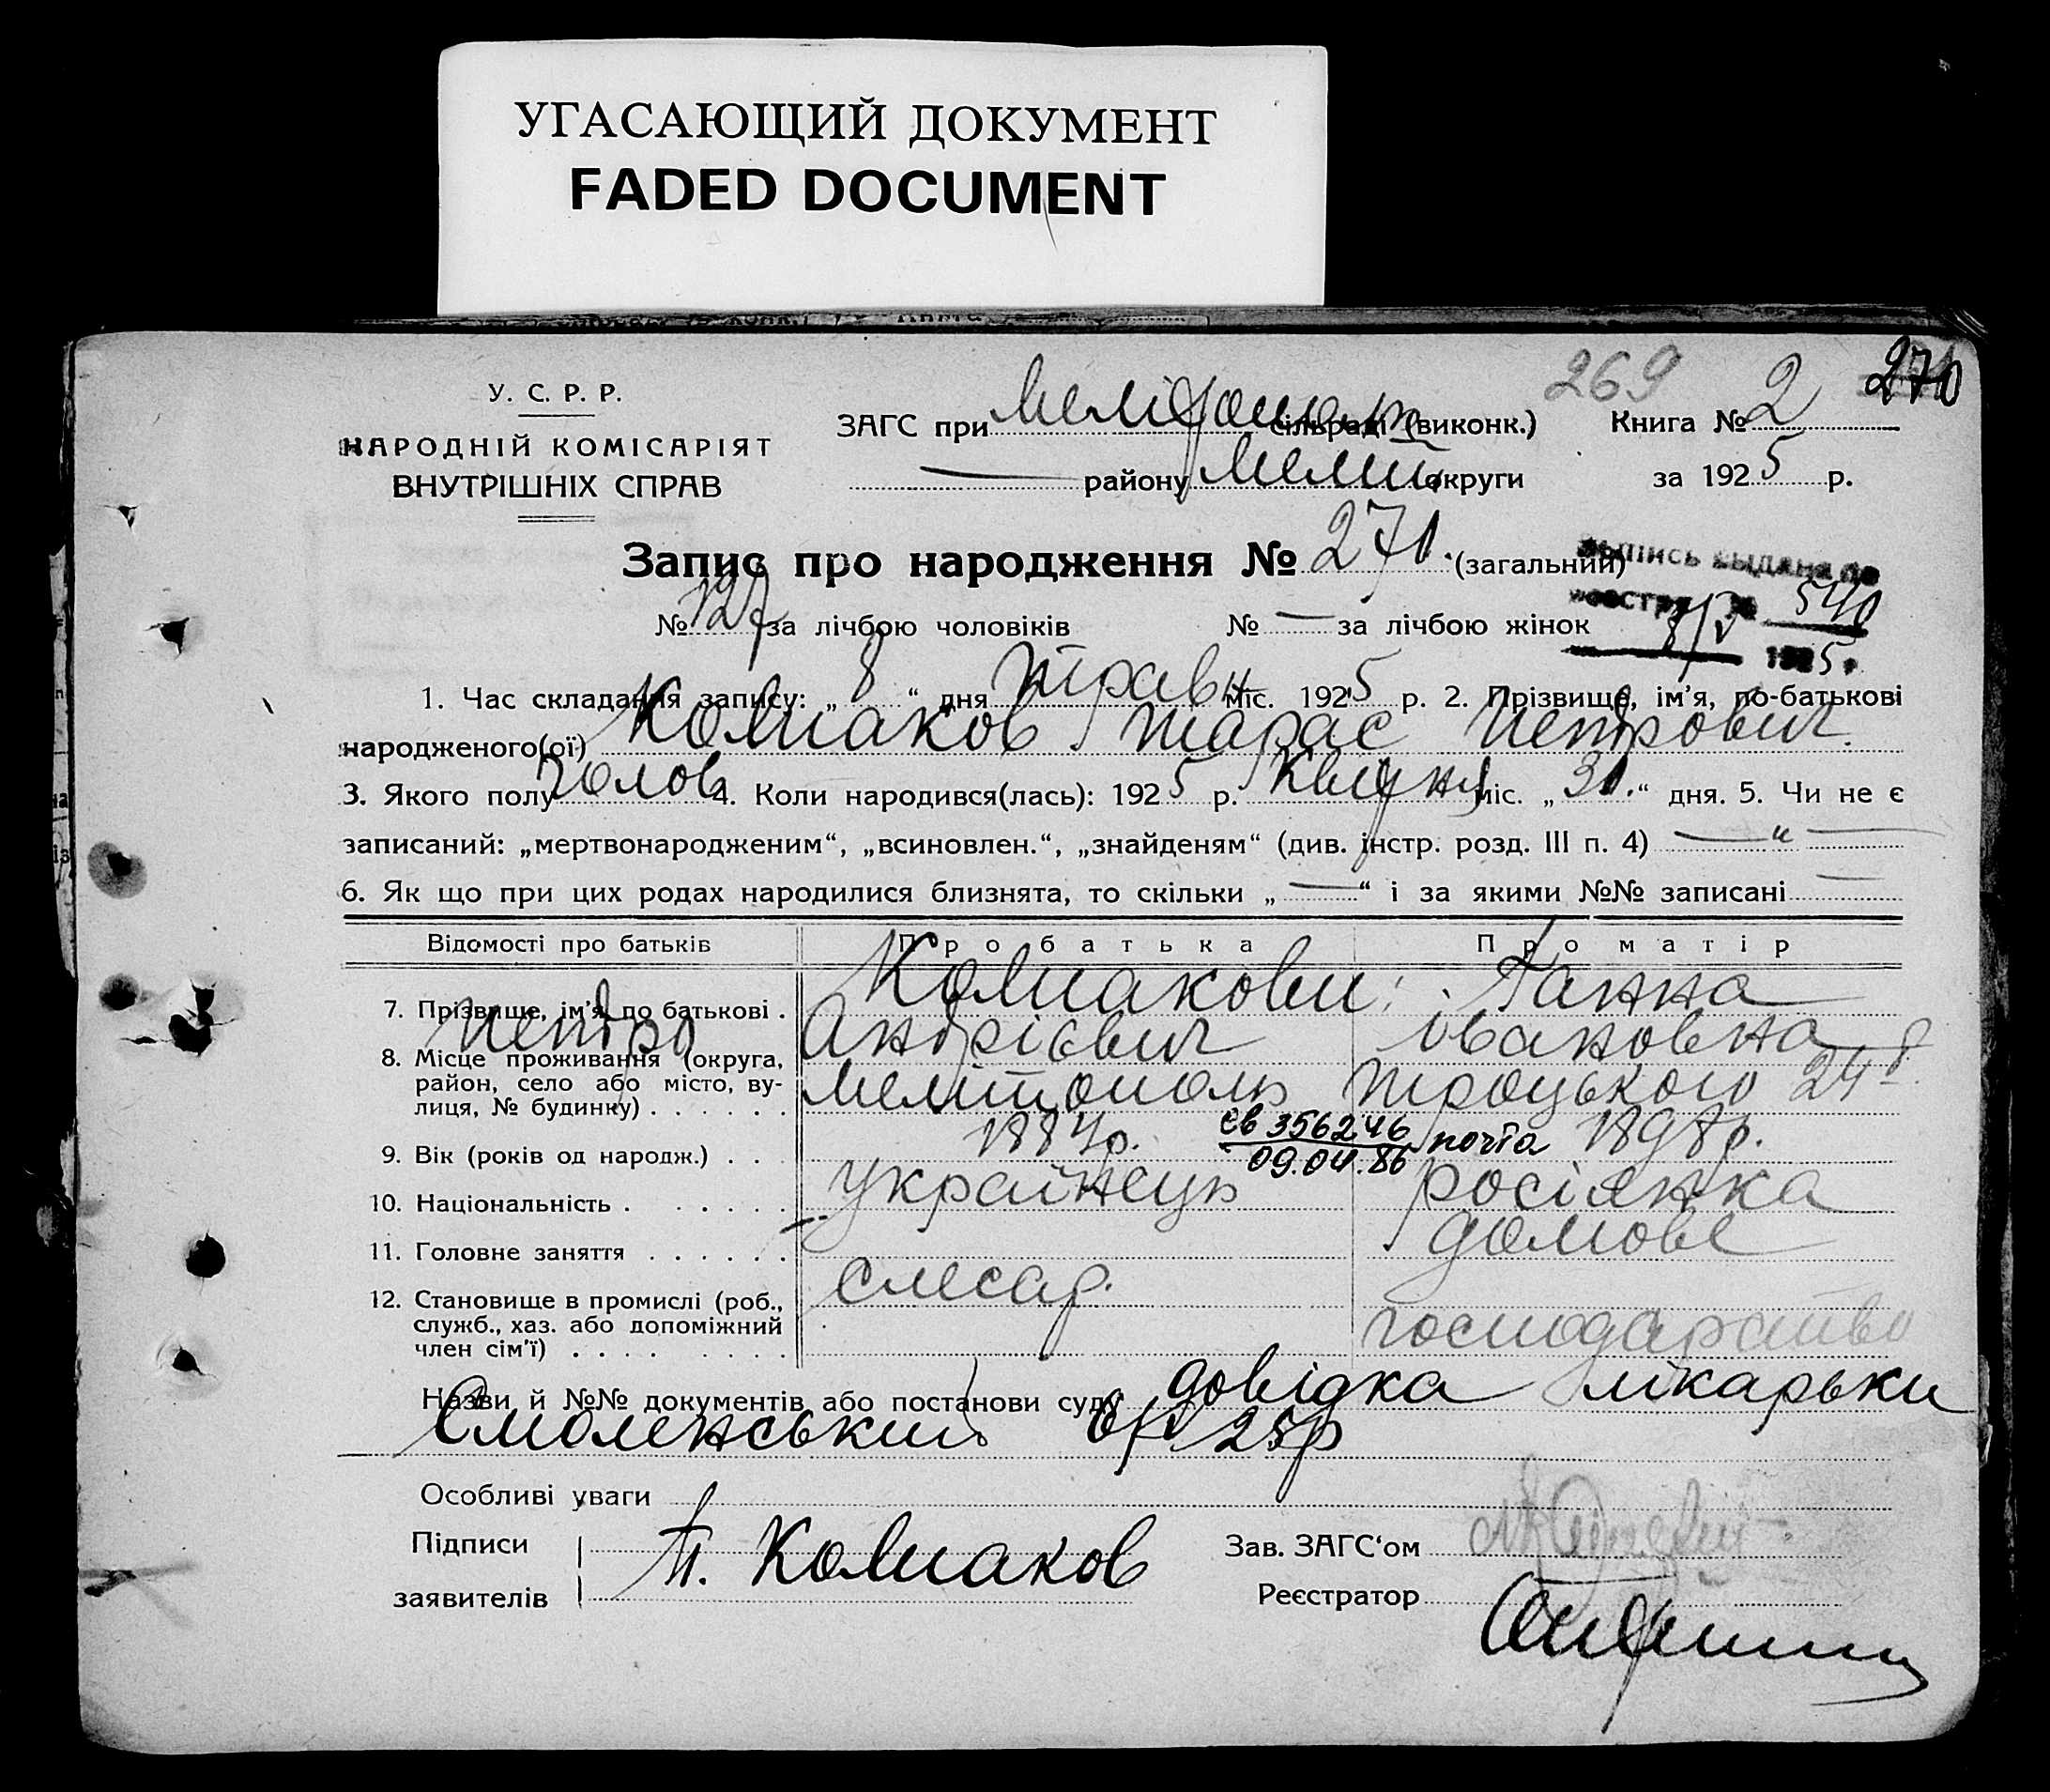 УГАСАЮЩИЙ ДОКУМЕНТ
FADED DOCUMENT
269 270
У. С. Р. Р.
НАРОДНІЙ КОМІСАРІЯТ
ВНУТРІШНІХ СПРАВ
ЗАГС при сільраді (виконк.) Книга № 2
— району Меліт. округи за 1925 р.
Запис про народження № 270. (загальний)
Выпись выдана по
реестру № 540
8/V 1925 г.
№ 127 за лічбою чоловіків № — за лічбою жінок
1. Час складання запису: „8“ дня травн міс. 1925 р. 2. Прізвище, ім’я, по-батькові
народженого(ої) Колпаков Тарас Петрович.
3. Якого полу чолов 4. Коли народився(лась): 1925 р. Квітня міс. „30.“ дня. 5. Чи не є
записаний: „мертвонародженим“, „всиновлен.“, „знайденям“ (див. інстр. розд. III п. 4) — „ —
6. Як що при цих родах народилися близнята, то скільки „—“ і за якими №№ записані —
Відомості про батьків Про батька Про матір
7. Прізвище, ім’я, по батькові . Колпакови: Ганна
Петро Андрієвич Івановна
8. Місце проживання (округа, район, село або місто, вулиця, № будинку) . . . . . . Мелітополь Троцького 24
9. Вік (років од народж.) . . . 1884р. 1898р.
єв 356246 почта
09.04.86
10. Національність . . . . . . українець росіянка
11. Головне заняття . . . . . . слесар. домове
12. Становище в промислі (роб., служб., хаз. або допоміжний член сім’ї) . . . . . . . . господарство
Назви й №№ документів або постанови суду довідка лікарьки
Смоленський 6/V 25р
Особливі уваги
Підписи заявителів П. Колпаков
Зав. ЗАГС‘ом
Реєстратор